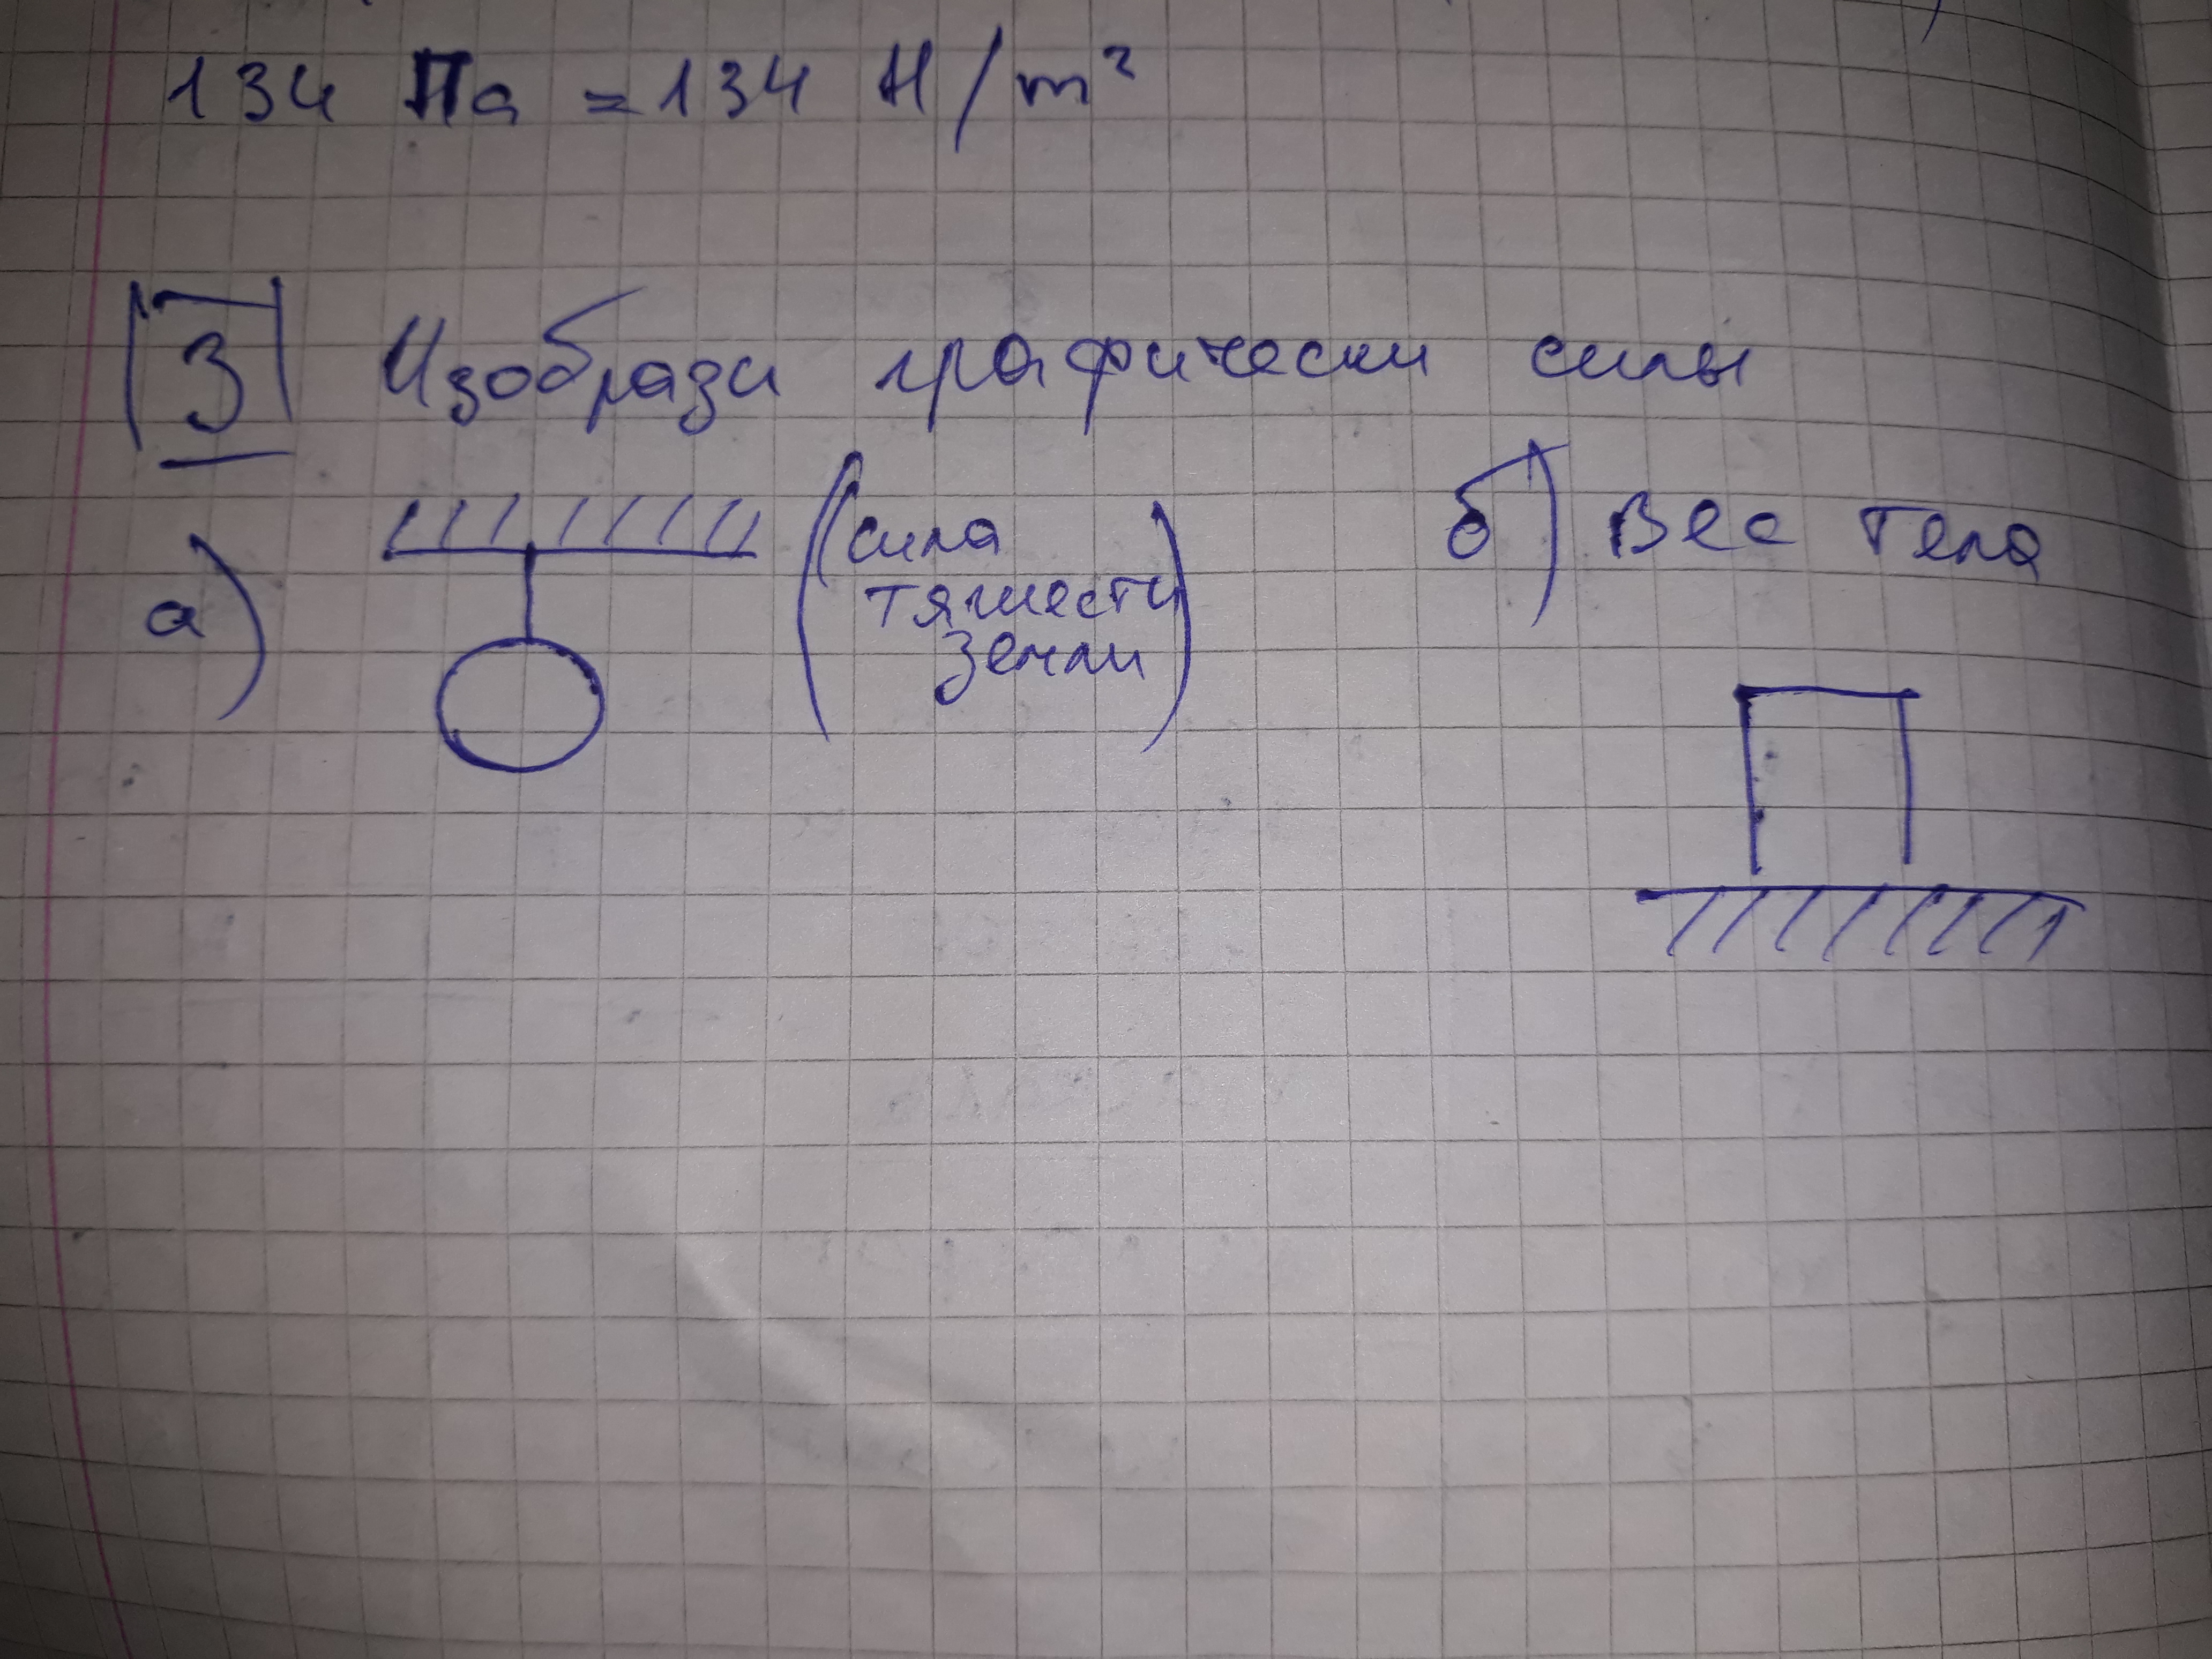 134 Па = 134 Н/m²
3 Изобрази графически силы
а) (сила тяжести Земли)
б) Вес тела